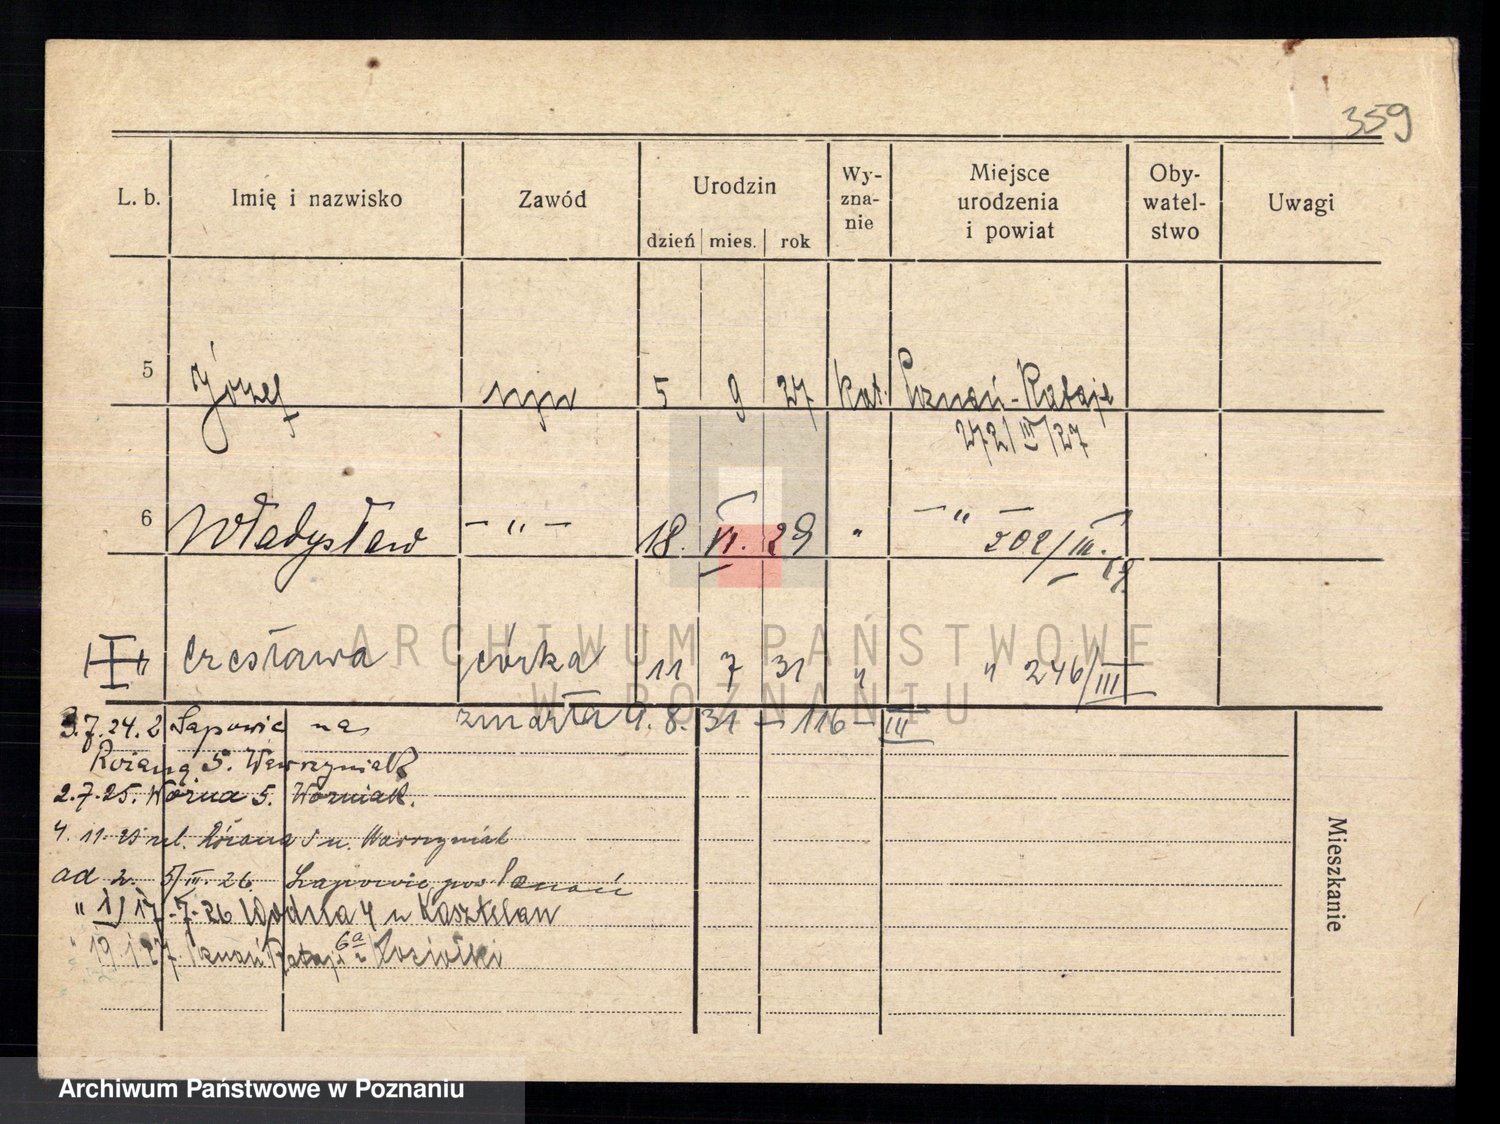 359
L. b. Imię i nazwisko Zawód Urodzin Wy-zna-nie Miejsce urodzenia i powiat Oby-watel-stwo Uwagi
dzień mies. rok
5 Józef syn 5 9 27 kat. Poznań-Rataje
272/III/27
6 Władysław — " — 18. VI. 29 " — " — 202/III.
Czesława córka 11 7 31 " " 246/III
zmarła 9. 8. 31 — 116 — III
3.7.24. 2 Łapowic na
Różaną 5. Wawrzyniak
2.7.25. Woźna 5. Woźniak.
4. 11. 25 ul. Różana 5 u. Wawrzyniak
ad 2. 5/III. 26. Łapowic, pow. Poznań
" 1) 17.-7.-26 Wodna 4 u Kasztelan
" 19.1.27. Poznań Rataje 6a u Kociołki
Mieszkanie
ARCHIWUM PAŃSTWOWE
W POZNANIU
Archiwum Państwowe w Poznaniu